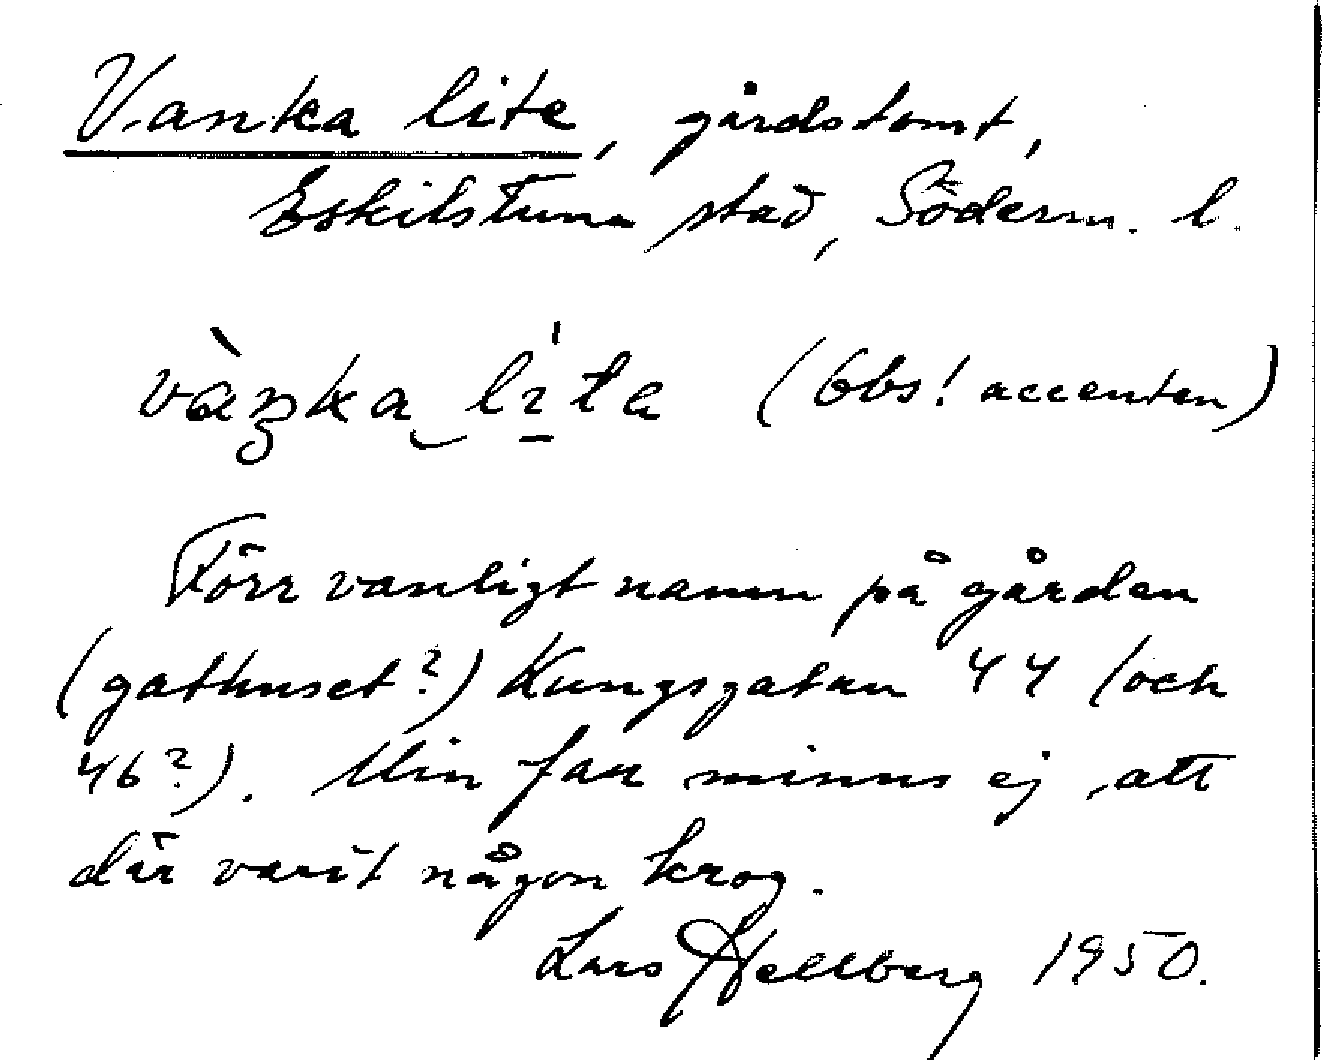 Vanka lite, gårdstomt,
Eskilstuna stad, Söderm. l.
vàŋka‿lı̱́ta (Obs! accenten)
Förr vanligt namn på gården
(gathuset?) Kungsgatan 44 (och
46?). Min far minns ej, att
där varit någon krog.
Lars Hellberg 1950.